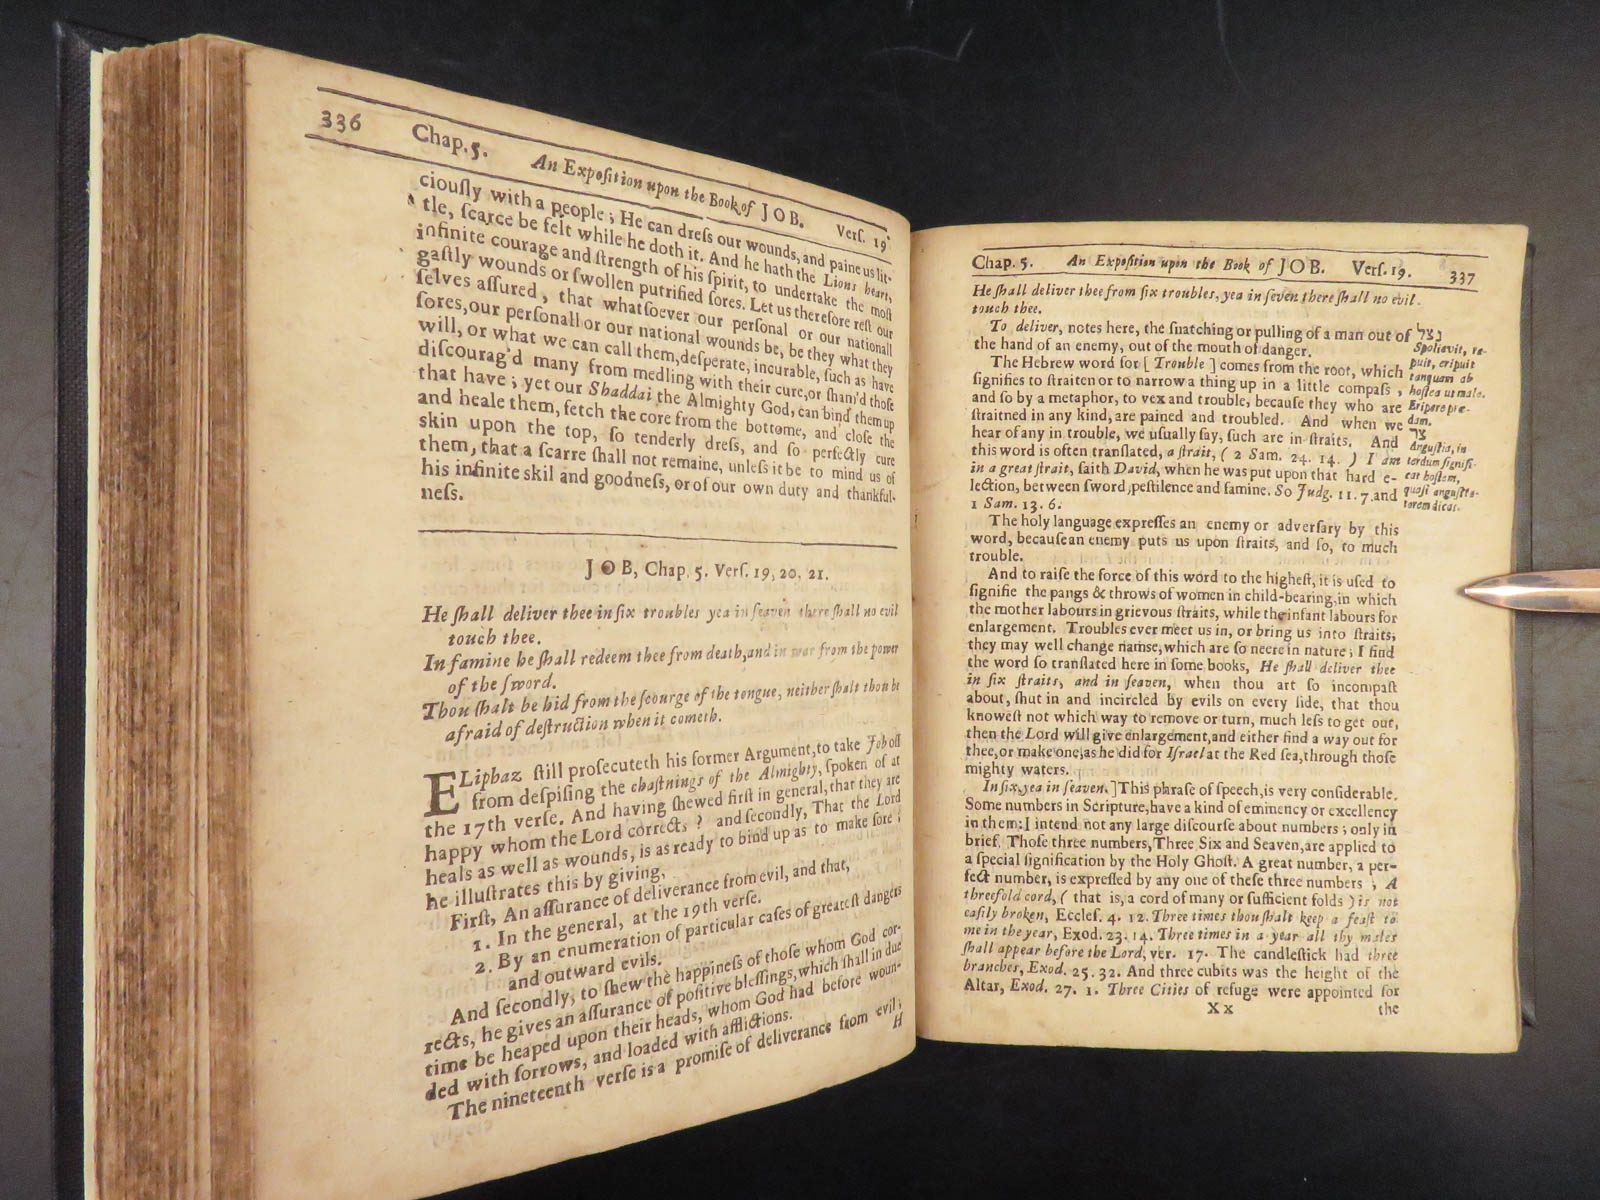 336 Chap. 5. An Expoſition upon the Book of JOB. Verſ. 19
ciouſly with a people; He can dreſs our wounds, and paine us lit-
tle, ſcarce be felt while he doth it. And he hath the Lions heart,
infinite courage and ſtrength of his ſpirit, to undertake the moſt
gaſtly wounds or ſwollen putrified ſores. Let us therefore reſt our
ſelves aſſured, that whatſoever our perſonal or our nationall
ſores, our perſonall or our national wounds be, be they what they
will, or what we can call them, deſperate, incurable, ſuch as have
diſcourag'd many from medling with their cure, or ſham'd thoſe
that have; yet our Shaddai the Almighty God, can bind them up
and heale them, fetch the core from the bottome, and cloſe the
skin upon the top, ſo tenderly dreſs, and ſo perfectly cure
them, that a ſcarre ſhall not remaine, unleſs it be to mind us of
his infinite skil and goodneſs, or of our own duty and thankful-
neſs.
JOB, Chap. 5. Verſ. 19, 20, 21.
He ſhall deliver thee in ſix troubles yea in ſeaven there ſhall no evil
touch thee.
In famine he ſhall redeem thee from death, and in war from the power
of the ſword.
Thou ſhalt be hid from the ſcourge of the tongue, neither ſhalt thou be
afraid of deſtruction when it cometh.
ELiphaz ſtill proſecuteth his former Argument, to take Job off
from deſpiſing the chaſtnings of the Almighty, ſpoken of at
the 17th verſe. And having ſhewed firſt in general, that they are
happy whom the Lord corrects? and ſecondly, That the Lord
heals as well as wounds, is as ready to bind up as to make ſore;
he illuſtrates this by giving,
Firſt, An aſſurance of deliverance from evil, and that,
1. In the general, at the 19th verſe.
2. By an enumeration of particular caſes of greateſt dangers
and outward evils.
And ſecondly, to ſhew the happineſs of thoſe whom God cor-
rects, he gives an aſſurance of poſitive bleſſings, which ſhall in due
time be heaped upon their heads, whom God had before woun-
ded with ſorrows, and loaded with afflictions.
The nineteenth verſe is a promiſe of deliverance from evil;
H
Chap. 5. An Expoſition upon the Book of JOB. Verſ. 19. 337
He ſhall deliver thee from ſix troubles, yea in ſeven there ſhall no evil
touch thee.
To deliver, notes here, the ſnatching or pulling of a man out of
the hand of an enemy, out of the mouth of danger.
The Hebrew word for [ Trouble ] comes from the root, which
ſignifies to ſtraiten or to narrow a thing up in a little compaſs,
and ſo by a metaphor, to vex and trouble, becauſe they who are
ſtraitned in any kind, are pained and troubled. And when we
hear of any in trouble, we uſually ſay, ſuch are in ſtraits. And
this word is often tranſlated, a ſtrait, ( 2 Sam. 24. 14. ) I am
in a great ſtrait, ſaith David, when he was put upon that hard e-
lection, between ſword, peſtilence and famine. So Judg. 11. 7. and
1 Sam. 13. 6.
The holy language expreſſes an enemy or adverſary by this
word, becauſe an enemy puts us upon ſtraits, and ſo, to much
trouble.
And to raiſe the force of this word to the higheſt, it is uſed to
ſignifie the pangs & throws of women in child-bearing, in which
the mother labours in grievous ſtraits, while the infant labours for
enlargement. Troubles ever meet us in, or bring us into ſtraits,
they may well change namse, which are ſo neere in nature; I find
the word ſo tranſlated here in ſome books, He ſhall deliver thee
in ſix ſtraits, and in ſeaven, when thou art ſo incompaſt
about, ſhut in and incircled by evils on every ſide, that thou
knoweſt not which way to remove or turn, much leſs to get out,
then the Lord will give enlargement, and either find a way out for
thee, or make one, as he did for Iſrael at the Red ſea, through thoſe
mighty waters.
In ſix, yea in ſeaven.] This phraſe of ſpeech, is very conſiderable.
Some numbers in Scripture, have a kind of eminency or excellency
in them: I intend not any large diſcourſe about numbers; only in
brief. Thoſe three numbers, Three Six and Seaven, are applied to
a ſpecial ſignification by the Holy Ghoſt. A great number, a per-
fect number, is expreſſed by any one of theſe three numbers; A
threefold cord, ( that is, a cord of many or ſufficient folds ) is not
eaſily broken, Eccleſ. 4. 12. Three times thou ſhalt keep a feaſt to
me in the year, Exod. 23. 14. Three times in a year all thy males
ſhall appear before the Lord, ver. 17. The candleſtick had three
branches, Exod. 25. 32. And three cubits was the height of the
Altar, Exod. 27. 1. Three Cities of refuge were appointed for
Xx the
נצל
Spoliavit, re-
puit, eripuit
tanquam ab
hoſte a ut male.
Eripere præ-
dam.
צר
Anguſtia, in
terdum ſignifi-
cat hoſtem,
quaſi anguſta-
torem dicas.